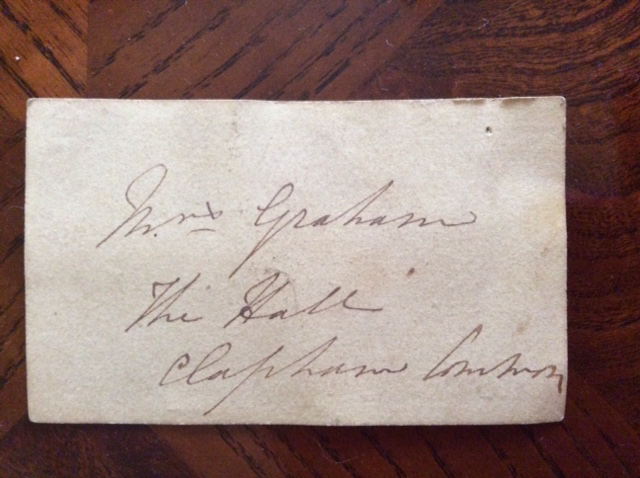 Mrs Graham
The Hall
Clapham Common